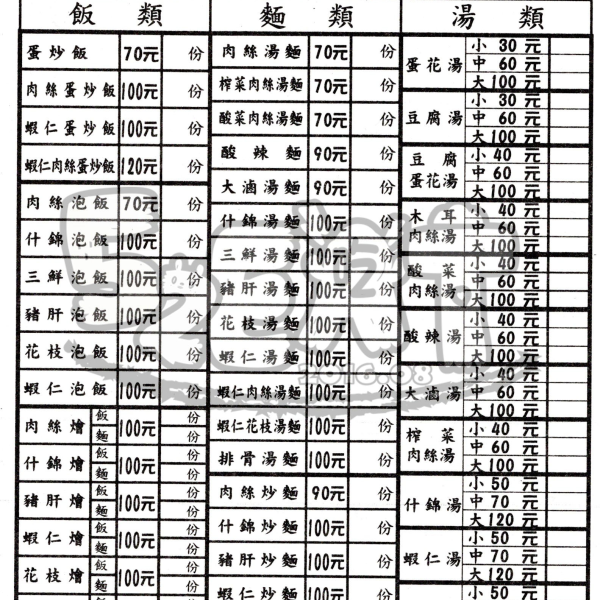 飯類
蛋炒飯 70元 份
肉絲蛋炒飯 100元 份
蝦仁蛋炒飯 100元 份
蝦仁肉絲蛋炒飯 120元 份
肉絲泡飯 70元 份
什錦泡飯 100元 份
三鮮泡飯 100元 份
豬肝泡飯 100元 份
花枝泡飯 100元 份
蝦仁泡飯 100元 份
肉絲燴 飯 麵 100元 份 份
什錦燴 飯 麵 100元 份 份
豬肝燴 飯 麵 100元 份 份
蝦仁燴 飯 麵 100元 份 份
花枝燴 飯 麵 100元 份 份
麵類
肉絲湯麵 70元 份
榨菜肉絲湯麵 70元 份
酸菜肉絲湯麵 70元 份
酸辣麵 90元 份
大滷湯麵 90元 份
什錦湯麵 100元 份
三鮮湯麵 100元 份
豬肝湯麵 100元 份
花枝湯麵 100元 份
蝦仁湯麵 100元 份
蝦仁肉絲湯麵 100元 份
蝦仁花枝湯麵 100元 份
排骨湯麵 100元 份
肉絲炒麵 90元 份
什錦炒麵 100元 份
豬肝炒麵 100元 份
蝦仁炒麵 100元 份
湯類
蛋花湯 小 30 元
中 60 元
大 100 元
豆腐湯 小 30 元
中 60 元
大 100 元
豆腐蛋花湯 小 40 元
中 60 元
大 100 元
木耳肉絲湯 小 40 元
中 60 元
大 100 元
酸菜肉絲湯 小 40 元
中 60 元
大 100 元
酸辣湯 小 40 元
中 60 元
大 100 元
大滷湯 小 40 元
中 60 元
大 100 元
榨菜肉絲湯 小 40 元
中 60 元
大 100 元
什錦湯 小 50 元
中 70 元
大 120 元
蝦仁湯 小 50 元
中 70 元
大 120 元
小 50 元
2016.08